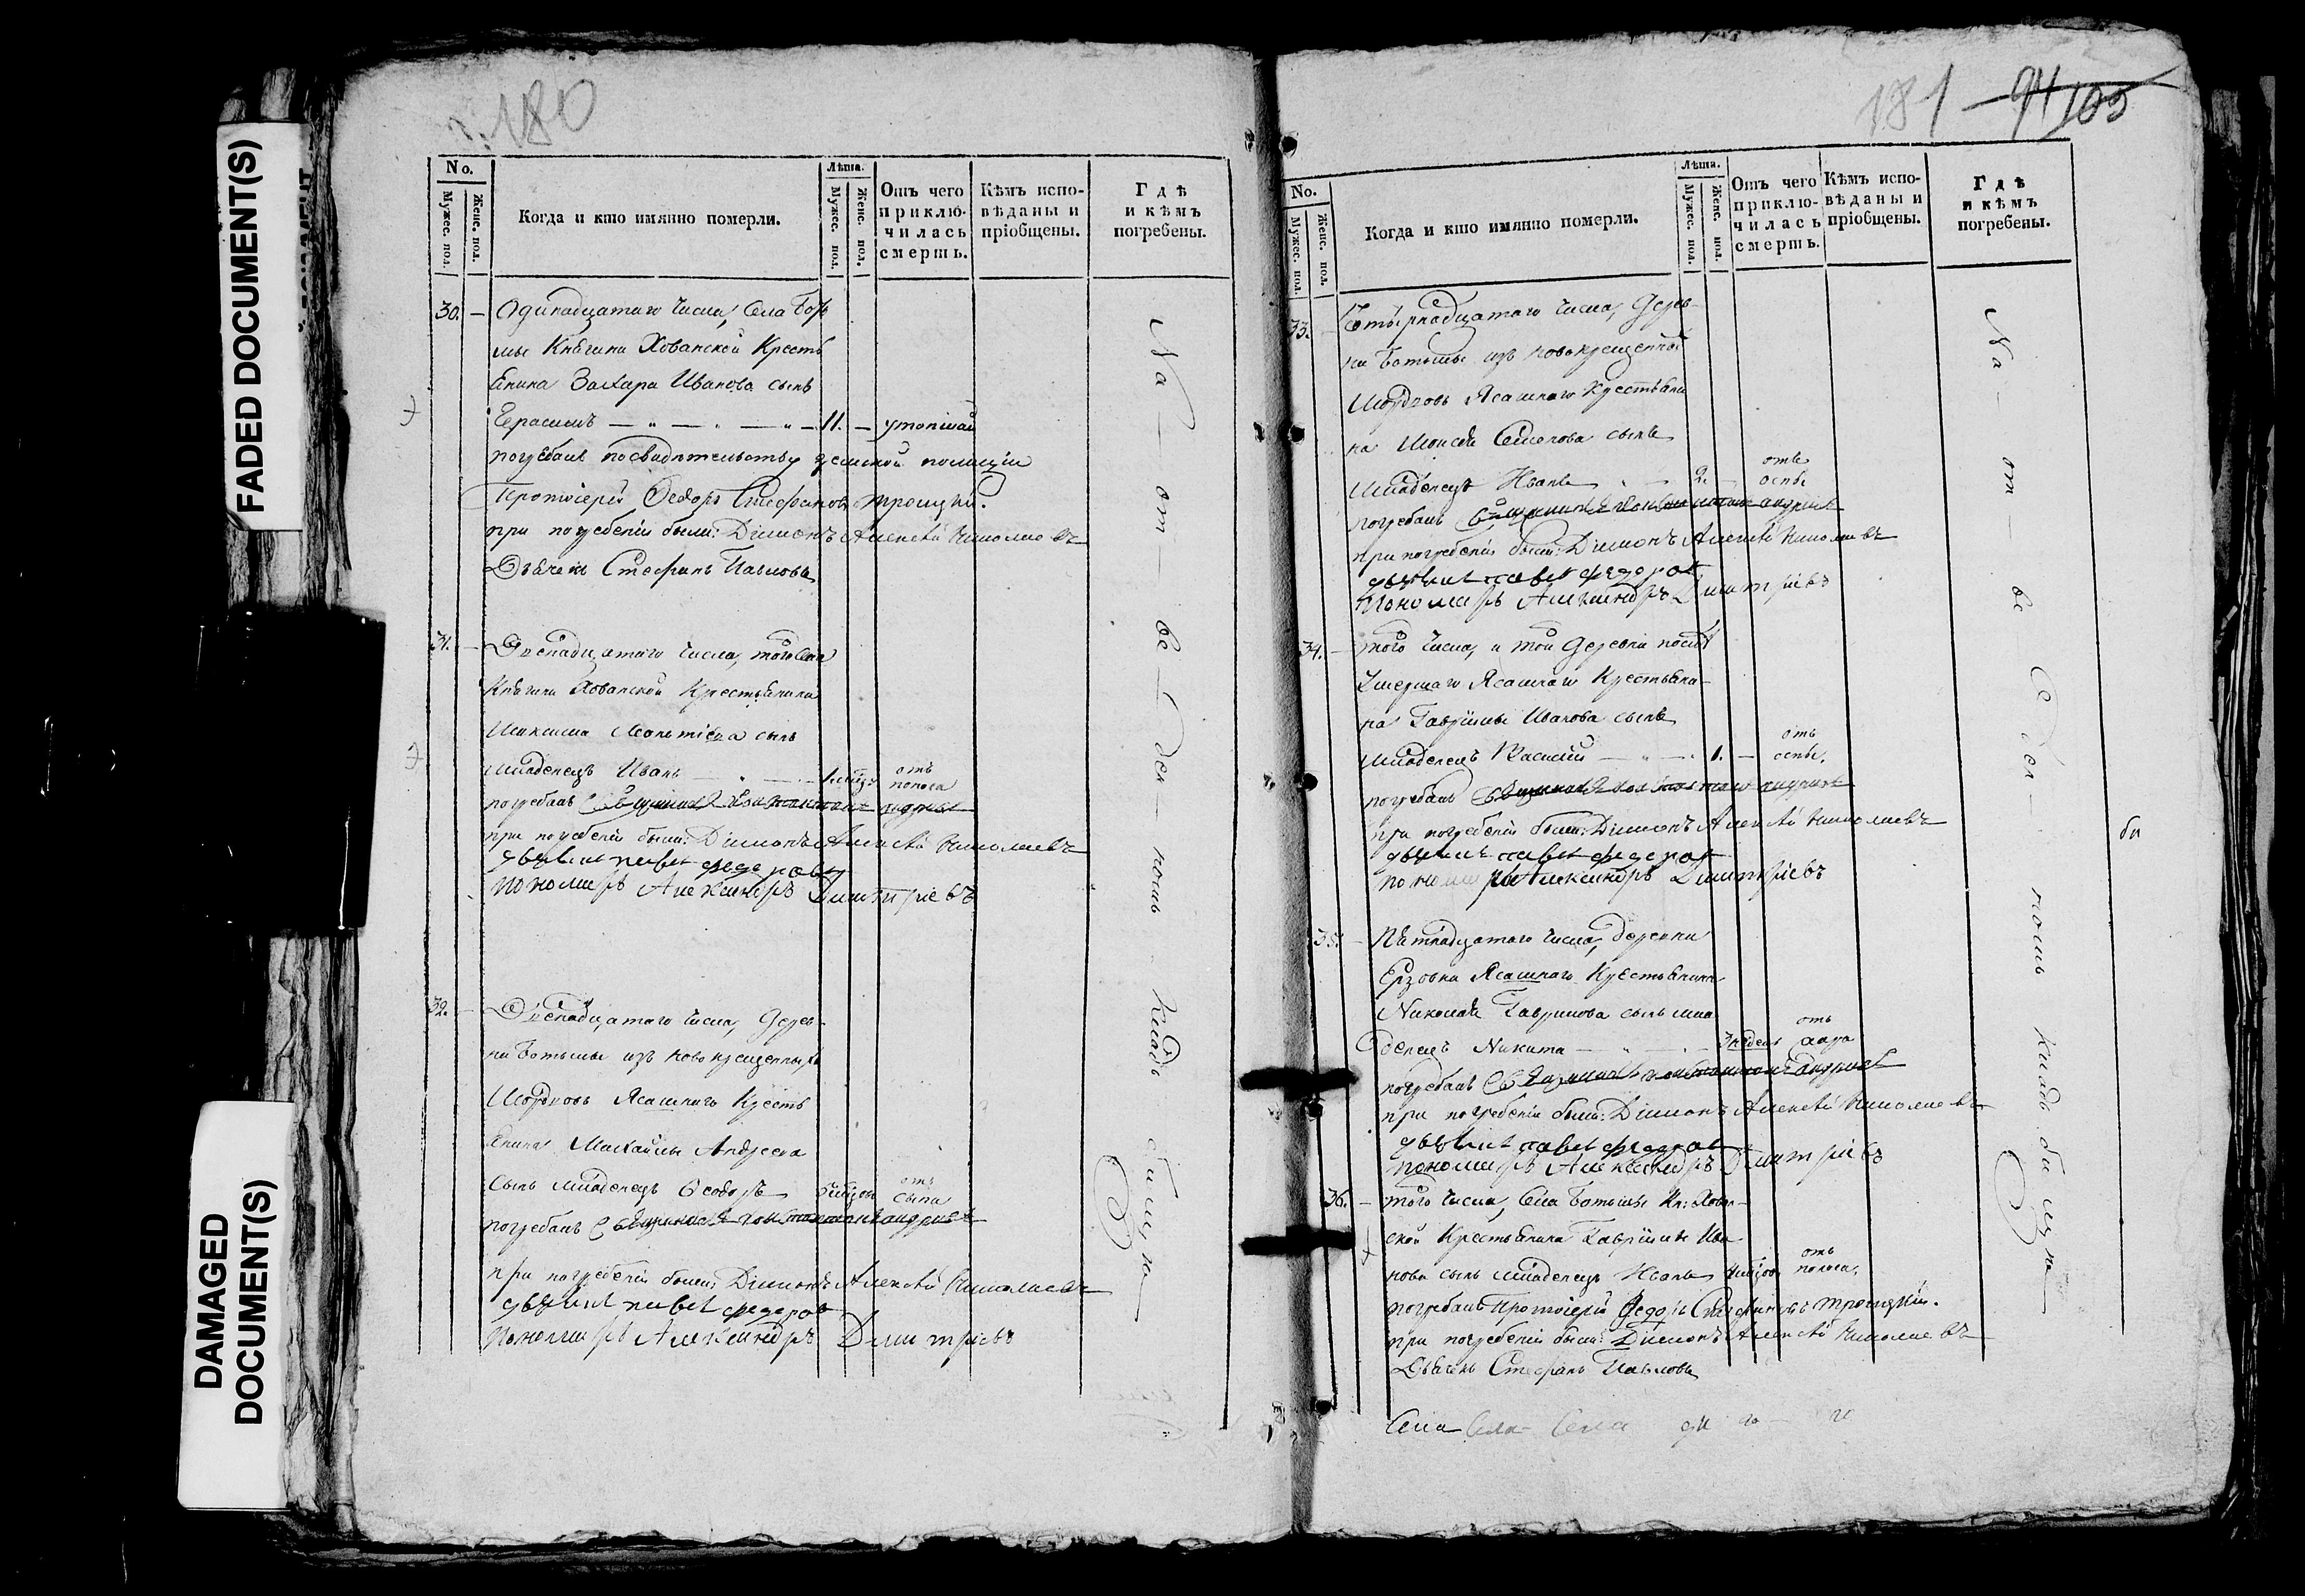 FADED DOCUMENT(S)
DAMAGED
DOCUMENT(S)
180
No.
Мужес. пол.
Женс. пол.
Когда и кто имянно померли.
Лѣта.
Мужес. пол.
Женс. пол.
Отъ чего
приклю-
чилась
смерть.
Кѣмъ испо-
вѣданы и
пріобщены.
Гдѣ
и кѣмъ
погребены.
30. — Одинадцатаго числа, Села
Княгини Хованской Кресть
янина Захара Иванова сынъ
Герасимъ — „ — „ — „ — 11. —
погребалъ посвидѣтельству земской полиціи
Протоіерей Ѳеодоръ Стефановъ Троицкій.
при погребеніи были: Діяконъ Алексѣй Николаевъ
Дьячекъ Стефанъ Павловъ
31. — Двенадцатаго числа, того села
Княгини Хованской Крестьянина
Максима сынъ
младенецъ Иванъ — „ — отъ
поноса
погребалъ Священникъ Константинъ Андреевъ
при погребеніи были: Діяконъ Алексѣй Николаевъ
дьячекъ павелъ федоровъ
пономарь Александръ Димитріевъ
32. — Двенадцатаго числа, Дерев-
ни Ботьмы изъ новокрещенныхъ
Мордовъ Ясашнаго Кресть
янина Михайлы Андреева
сынъ младенецъ Ѳеодоръ отъ
погребалъ Священникъ Константинъ Андреевъ
при погребеніи были: Діяконъ Алексѣй Николаевъ
дьячекъ павелъ федоровъ
Пономарь Александръ Димитріевъ
На — от — ве — ден — номъ кладбищѣ
181 94/105
No.
Мужес. пол.
Женс. пол.
Когда и кто имянно померли.
Лѣта.
Мужес. пол.
Женс. пол.
Отъ чего
приклю-
чилась
смерть.
Кѣмъ испо-
вѣданы и
пріобщены.
Гдѣ
и кѣмъ
погребены.
33. Четырнадцатаго числа, Дерев-
ни Ботьмы изъ новокрещенныхъ
Мордовъ Ясашнаго Крестьяни
на Моисея Семенова сынъ
младенецъ Иванъ „ — 2. — отъ
оспы
погребалъ Священникъ Константинъ Андреевъ
при погребеніи были: Діяконъ Алексѣй Николаевъ
дьячекъ павелъ федоровъ
Пономарь Александръ Димитріевъ
34. — того числа, и той Деревни
умершаго Ясашнаго Крестьяни-
на Гаврилы Иванова сынъ
младенецъ Василій — „ — 1. — отъ
оспы.
погребалъ Священникъ Константинъ Андреевъ
при погребеніи были: Діяконъ Алексѣй Николаевъ
дьячекъ павелъ федоровъ
пономарь Александръ Димитріевъ
35. — Пятнадцатаго числа, деревни
Ерзовки Ясашнаго Крестьянина
Николая Гаврилова сынъ мла
денецъ Никита — „ — отъ
погребалъ Священникъ Константинъ Андреевъ
при погребеніи были: Діяконъ Алексѣй Николаевъ
дьячекъ павелъ федоровъ
пономарь Александръ Димитріевъ
36. — того числа, Села Ботьмы Кн: Хован-
ской Крестьянина Гаврилы Ива
нова сынъ младенецъ Иванъ отъ
поноса.
погребалъ Протоіерей Ѳедоръ Стефановъ Троицкій.
при погребеніи были: Діяконъ Алексѣй Николаевъ
Дьячекъ Стефанъ Павловъ
Села Села Села
На — от — ве — ден — номъ кладбищѣ